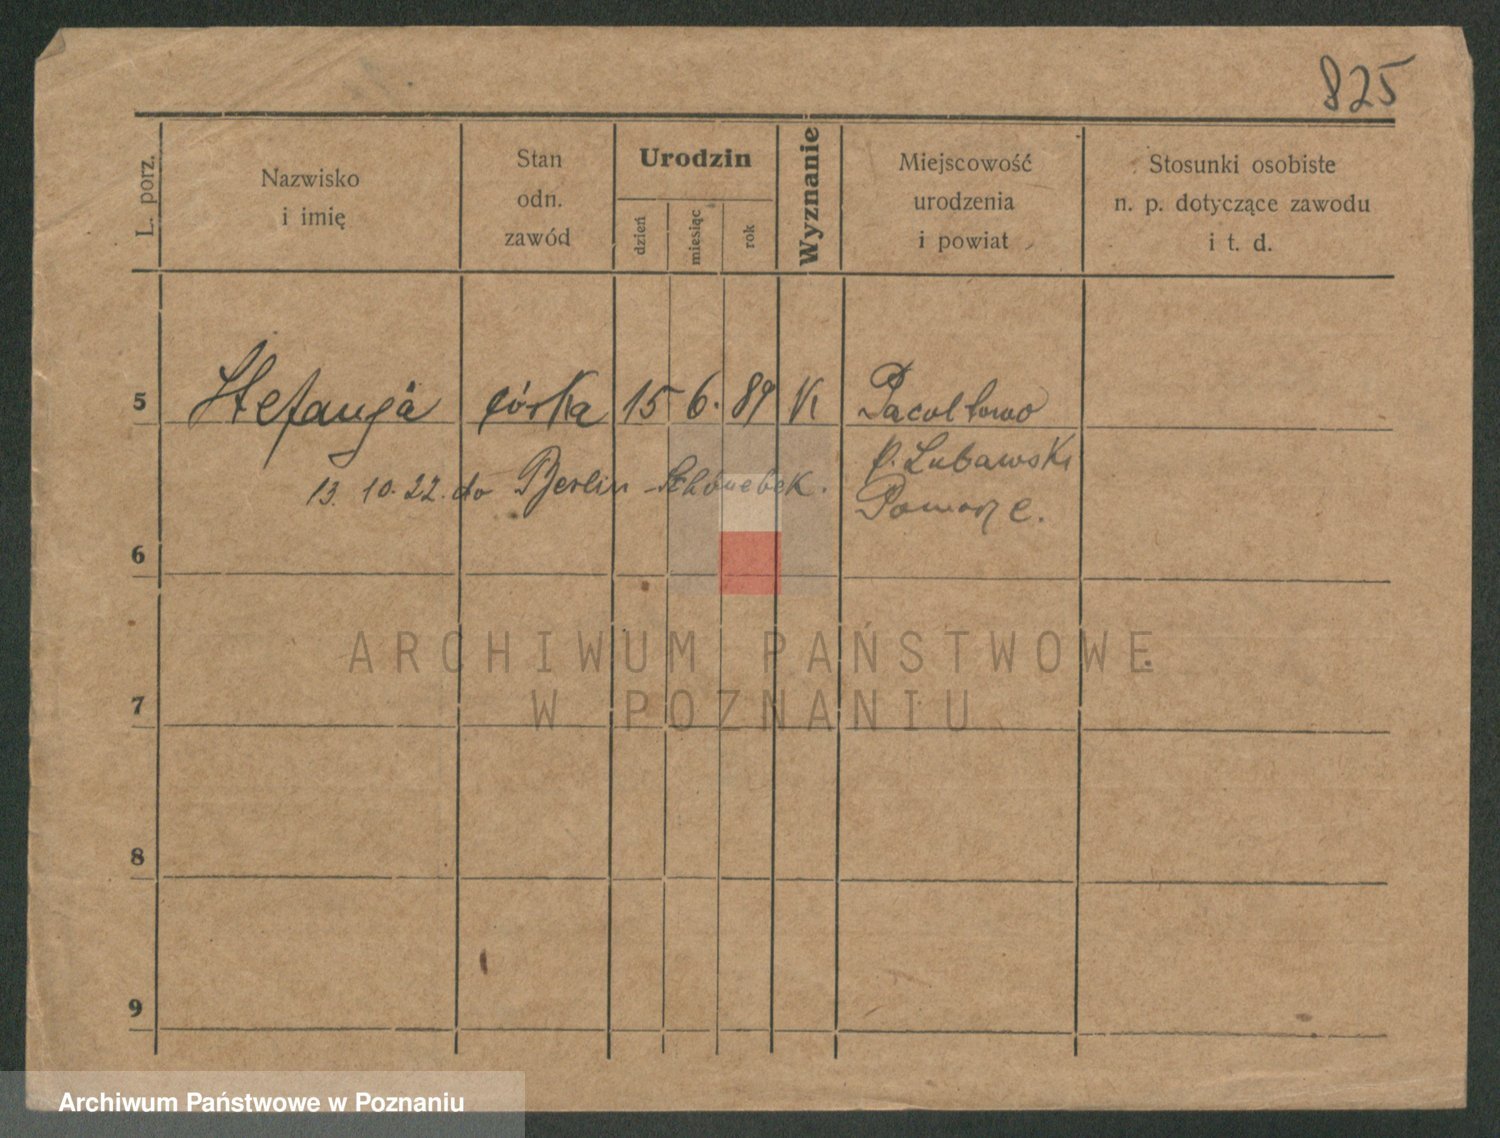 825
L. porz.
Nazwisko
i imię
Stan
odn.
zawód
Urodzin
dzień
miesiąc
rok
Wyznanie
Miejscowość
urodzenia
i powiat
Stosunki osobiste
n. p. dotyczące zawodu
i t. d.
5 Stefanja córka 15 6. 89 K Pacołtowo
p. Lubawski
13. 10. 22. do Berlin - Schönebek.
Pomorze.
6
7
8
9
ARCHIWUM PAŃSTWOWE
W POZNANIU
Archiwum Państwowe w Poznaniu